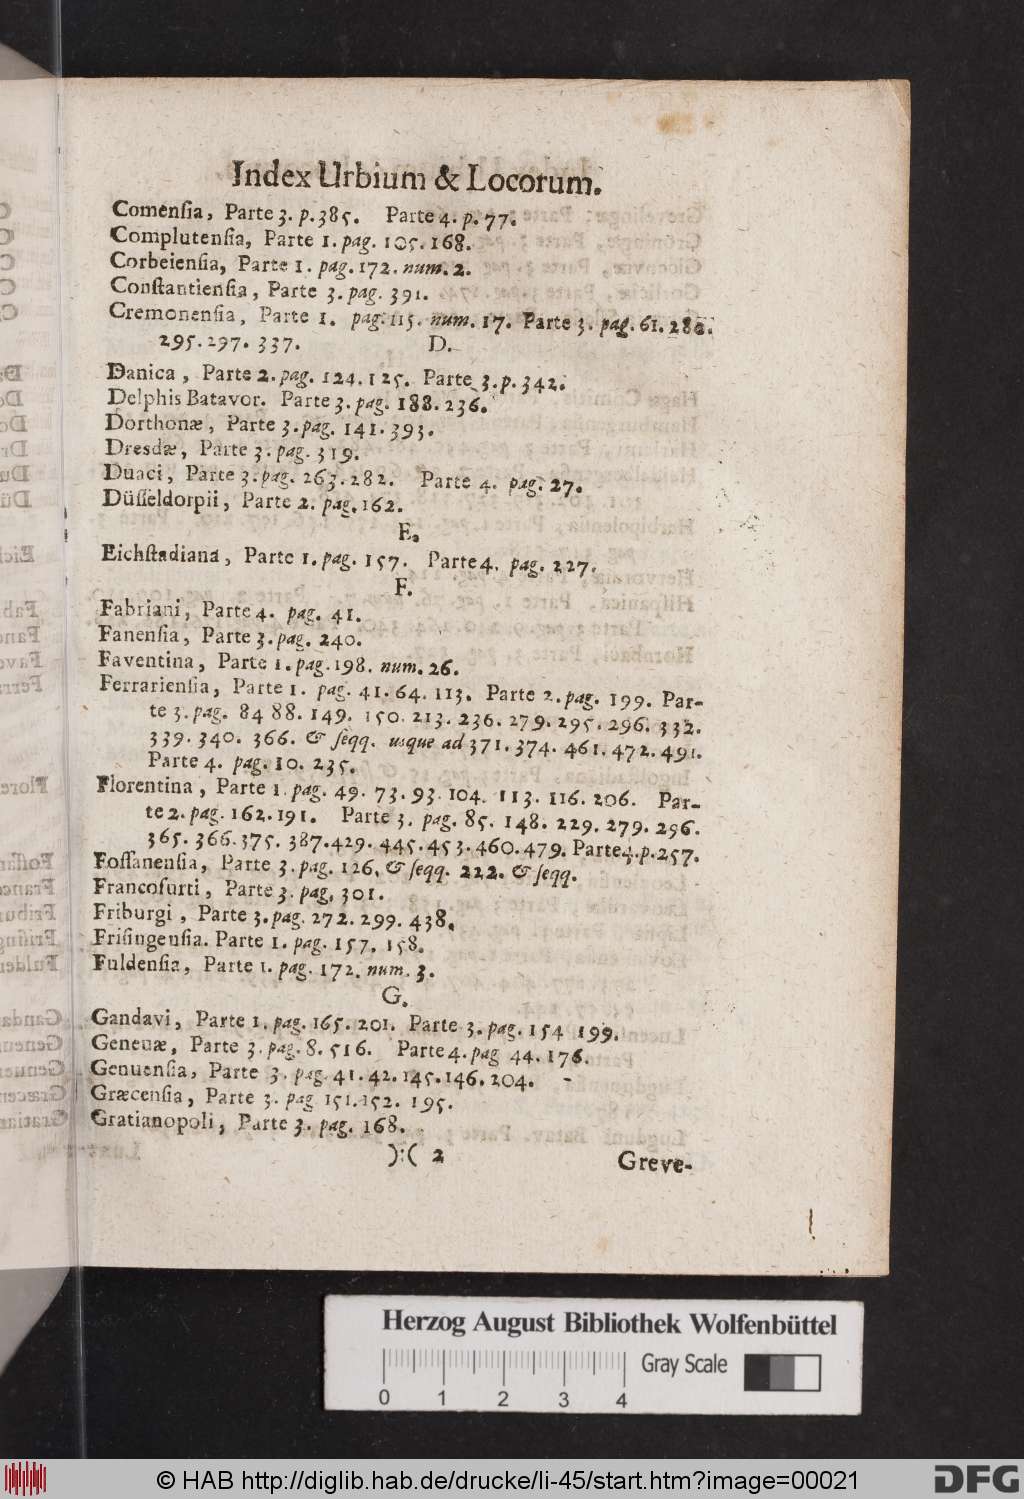 Index Urbium & Locorum.
Comensia, Parte 3. p. 385. Parte 4. p. 77.
Complutensia, Parte 1. pag. 105. 168.
Corbeiensia, Parte 1. pag. 172. num. 2.
Constantiensia, Parte 3. pag. 391.
Cremonensia, Parte 1. pag. 115. num. 17. Parte 3. pag. 61. 280.
295. 297. 337.
D.
Danica, Parte 2. pag. 124. 125. Parte 3. p. 342.
Delphis Batavor. Parte 3. pag. 188. 236.
Dorthonæ, Parte 3. pag. 141. 393.
Dresdæ, Parte 3. pag. 319.
Duaci, Parte 3. pag. 263. 282. Parte 4. pag. 27.
Düsseldorpii, Parte 2. pag. 162.
E.
Eichstadiana, Parte 1. pag. 157. Parte 4. pag. 227.
F.
Fabriani, Parte 4. pag. 41.
Fanensia, Parte 3. pag. 240.
Faventina, Parte 1. pag. 198. num. 26.
Ferrariensia, Parte 1. pag. 41. 64. 113. Parte 2. pag. 199. Par-
te 3. pag. 84 88. 149. 150. 213. 236. 279. 295. 296. 332.
339. 340. 366. & seqq. usque ad 371. 374. 461. 472. 491.
Parte 4. pag. 10. 235.
Florentina, Parte 1. pag. 49. 73. 93. 104. 113. 116. 206. Par-
te 2. pag. 162. 191. Parte 3. pag. 85. 148. 229. 279. 296.
365. 366. 375. 387. 429. 445. 453. 460. 479. Parte 4. p. 257.
Fossanensia, Parte 3. pag. 126. & seqq. 222. & seqq.
Francofurti, Parte 3. pag. 301.
Friburgi, Parte 3. pag. 272. 299. 438.
Frisingensia. Parte 1. pag. 157. 158.
Fuldensia, Parte 1. pag. 172. num. 3.
G.
Gandavi, Parte 1. pag. 165. 201. Parte 3. pag. 154 199.
Geneuæ, Parte 3. pag. 8. 516. Parte 4. pag 44. 176.
Genuensia, Parte 3. pag. 41. 42. 145. 146. 204.
Græcensia, Parte 3. pag 151. 152. 195.
Gratianopoli, Parte 3. pag. 168.
):( 2 Greve-
Herzog August Bibliothek Wolfenbüttel
Gray Scale
0 1 2 3 4
© HAB http://diglib.hab.de/drucke/li-45/start.htm?image=00021
DFG